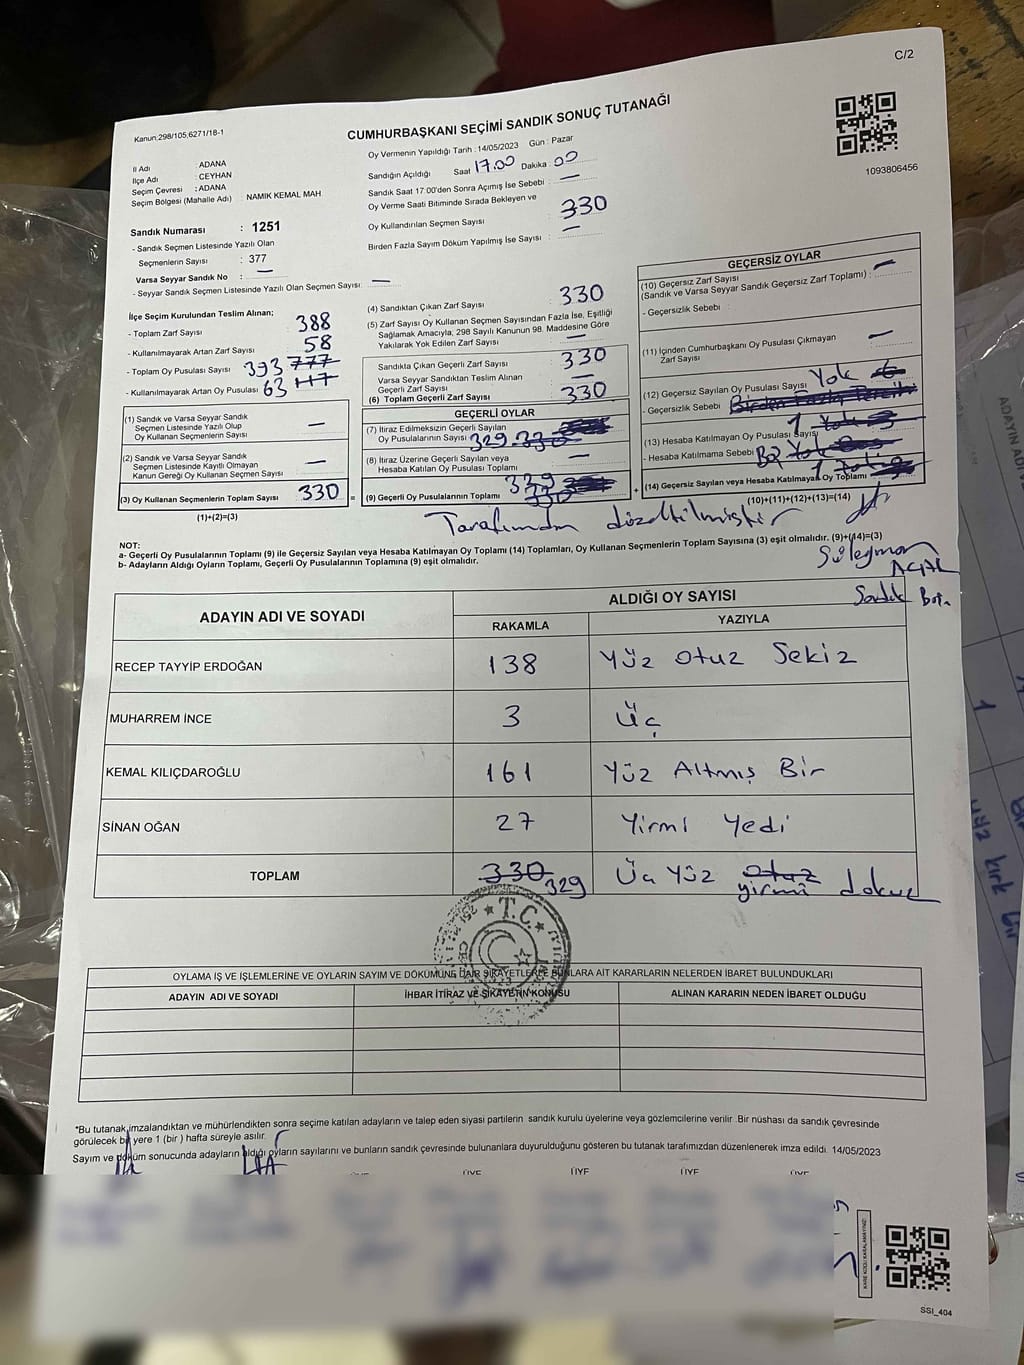 C/2
Kanun:298/105,6271/18-1
CUMHURBAŞKANI SEÇİMİ SANDIK SONUÇ TUTANAĞI
1093806456
İl Adı : ADANA
İlçe Adı : CEYHAN
Seçim Çevresi : ADANA
Seçim Bölgesi (Mahalle Adı) : NAMIK KEMAL MAH.
Oy Vermenin Yapıldığı Tarih : 14/05/2023 Gün : Pazar
Sandığın Açıldığı Saat 17.00 Dakika : 00
Sandık Saat 17 00'den Sonra Açılmış İse Sebebi : —
Oy Verme Saati Bitiminde Sırada Bekleyen ve
Oy Kullandırılan Seçmen Sayısı : 330
Birden Fazla Sayım Döküm Yapılmış İse Sayısı : —
Sandık Numarası : 1251
- Sandık Seçmen Listesinde Yazılı Olan
Seçmenlerin Sayısı : 377
Varsa Seyyar Sandık No : —
- Seyyar Sandık Seçmen Listesinde Yazılı Olan Seçmen Sayısı: —
İlçe Seçim Kurulundan Teslim Alınan;
- Toplam Zarf Sayısı 388
- Kullanılmayarak Artan Zarf Sayısı 58
- Toplam Oy Pusulası Sayısı 393 777
- Kullanılmayarak Artan Oy Pusulası 63
(1) Sandık ve Varsa Seyyar Sandık
Seçmen Listesinde Yazılı Olup
Oy Kullanan Seçmenlerin Sayısı —
(2) Sandık ve Varsa Seyyar Sandık
Seçmen Listesinde Kayıtlı Olmayan
Kanun Gereği Oy Kullanan Seçmen Sayısı —
(3) Oy Kullanan Seçmenlerin Toplam Sayısı 330 =
(1)+(2)=(3)
(4) Sandıktan Çıkan Zarf Sayısı 330
(5) Zarf Sayısı Oy Kullanan Seçmen Sayısından Fazla İse, Eşitliği
Sağlamak Amacıyla, 298 Sayılı Kanunun 98. Maddesine Göre
Yakılarak Yok Edilen Zarf Sayısı —
Sandıkta Çıkan Geçerli Zarf Sayısı 330
Varsa Seyyar Sandıktan Teslim Alınan
Geçerli Zarf Sayısı —
(6) Toplam Geçerli Zarf Sayısı 330
GEÇERLİ OYLAR
(7) İtiraz Edilmeksizin Geçerli Sayılan
Oy Pusulalarının Sayısı 329 330
(8) İtiraz Üzerine Geçerli Sayılan veya
Hesaba Katılan Oy Pusulası Toplamı —
(9) Geçerli Oy Pusulalarının Toplamı 329 330 +
GEÇERSİZ OYLAR
(10) Geçersiz Zarf Sayısı
(Sandık ve Varsa Seyyar Sandık Geçersiz Zarf Toplamı) : —
- Geçersizlik Sebebi :
(11) İçinden Cumhurbaşkanı Oy Pusulası Çıkmayan
Zarf Sayısı —
(12) Geçersiz Sayılan Oy Pusulası Sayısı Yok 6
- Geçersizlik Sebebi : Birden Fazla Tercih
(13) Hesaba Katılmayan Oy Pusulası Sayısı 1 Yok
- Hesaba Katılmama Sebebi Yok
(14) Geçersiz Sayılan veya Hesaba Katılmayan Oy Toplamı 1
(10)+(11)+(12)+(13)=(14)
Tarafımdan düzeltilmiştir
NOT:
a- Geçerli Oy Pusulalarının Toplamı (9) ile Geçersiz Sayılan veya Hesaba Katılmayan Oy Toplamı (14) Toplamları, Oy Kullanan Seçmenlerin Toplam Sayısına (3) eşit olmalıdır. (9)+(14)=(3)
b- Adayların Aldığı Oyların Toplamı, Geçerli Oy Pusulalarının Toplamına (9) eşit olmalıdır.
Süleyman
Sandık Baş.
ADAYIN ADI VE SOYADI
ALDIĞI OY SAYISI
RAKAMLA YAZIYLA
RECEP TAYYİP ERDOĞAN 138 Yüz otuz Sekiz
MUHARREM İNCE 3 Üç
KEMAL KILIÇDAROĞLU 161 Yüz Altmış Bir
SİNAN OĞAN 27 Yirmi Yedi
TOPLAM 330 329 Üç Yüz otuz yirmi dokuz
T.C.
OYLAMA İŞ VE İŞLEMLERİNE VE OYLARIN SAYIM VE DÖKÜMÜNE DAİR ŞİKAYETLERLE BUNLARA AİT KARARLARIN NELERDEN İBARET BULUNDUKLARI
ADAYIN ADI VE SOYADI İHBAR İTİRAZ VE ŞİKAYETİN KONUSU ALINAN KARARIN NEDEN İBARET OLDUĞU
*Bu tutanak imzalandıktan ve mühürlendikten sonra seçime katılan adayların ve talep eden siyasi partilerin sandık kurulu üyelerine veya gözlemcilerine verilir. Bir nüshası da sandık çevresinde
görülecek bir yere 1 (bir ) hafta süreyle asılır.
Sayım ve döküm sonucunda adayların aldığı oyların sayılarını ve bunların sandık çevresinde bulunanlara duyurulduğunu gösteren bu tutanak tarafımızdan düzenlenerek imza edildi. 14/05/2023
ÜYE ÜYE ÜYE ÜYE
KARE KODU KARALAMAYINIZ!
SSI_404